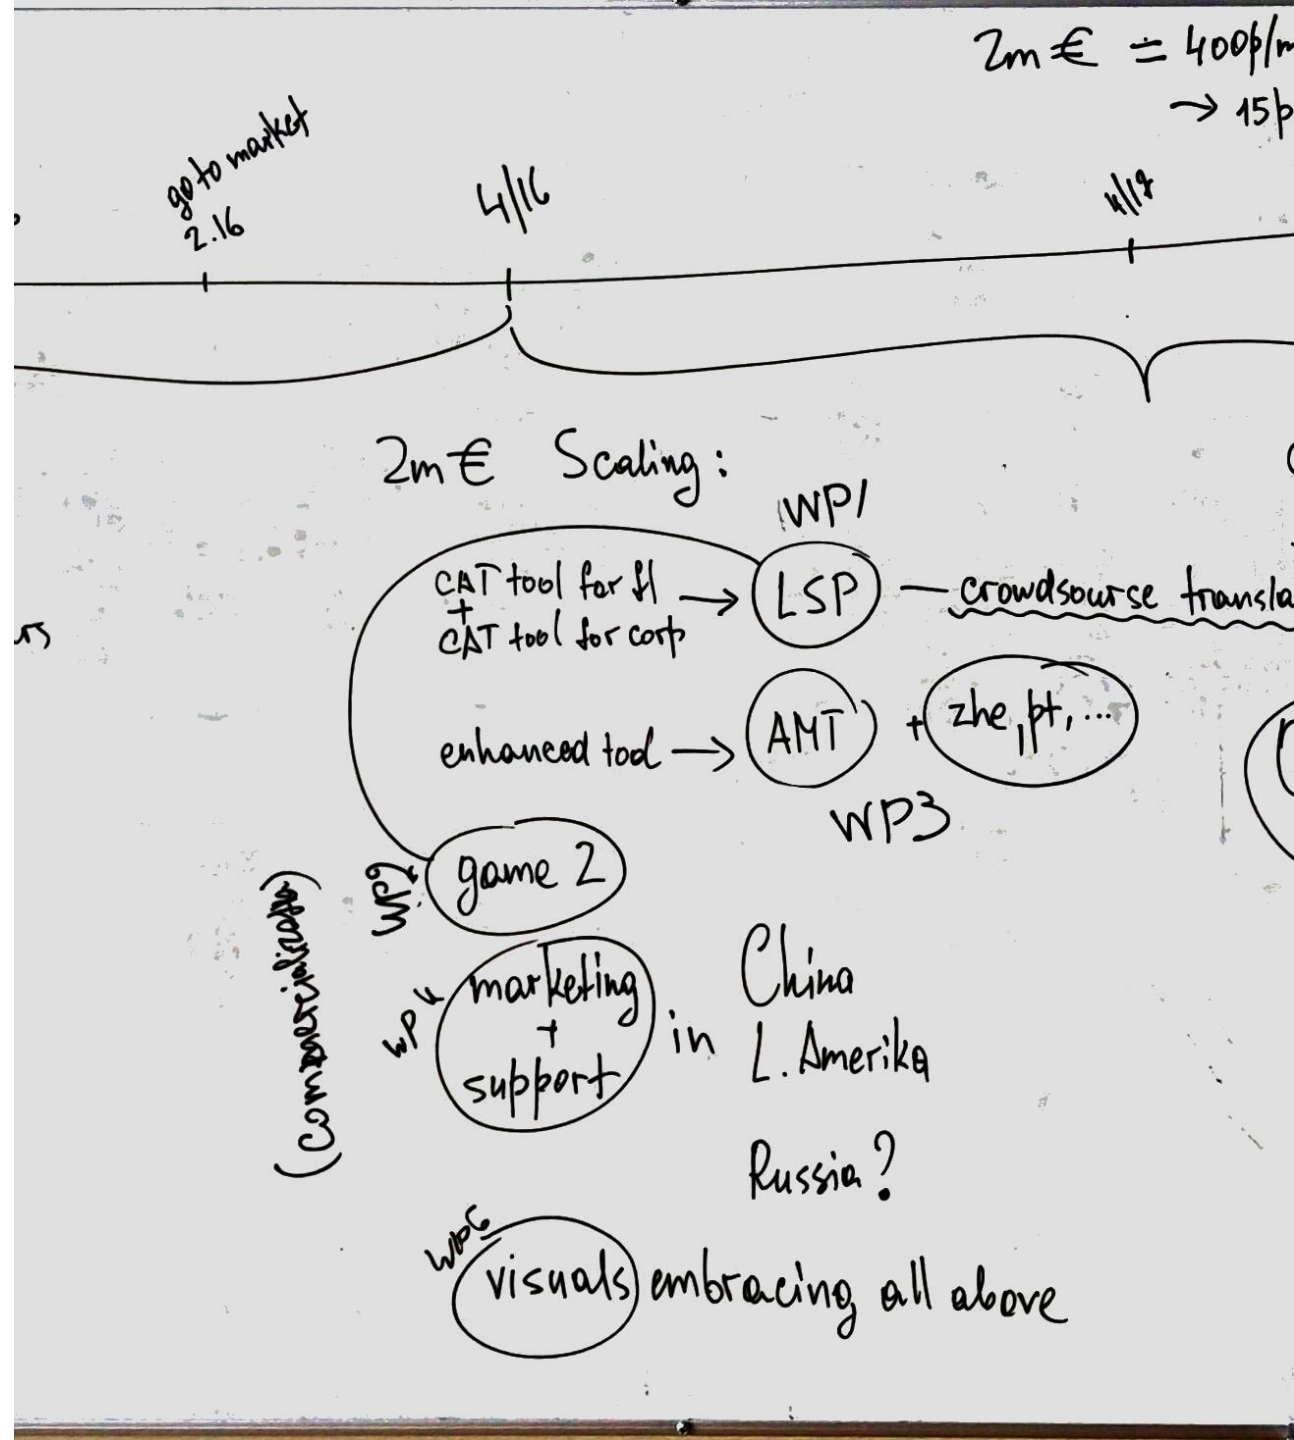 2m € = 400p/m
→ 15p
go to market
2.16
4/16
4/18
2m € Scaling:
WP1
CAT tool for fl → LSP — crowdsourse transla
+
CAT tool for corp
enhanced tool → AMT + zhe, pt, ...
WP3
WP2 game 2
(Commercialization)
WP4 marketing
+
support
in
China
L. Amerika
Russia?
visuals embracing all above